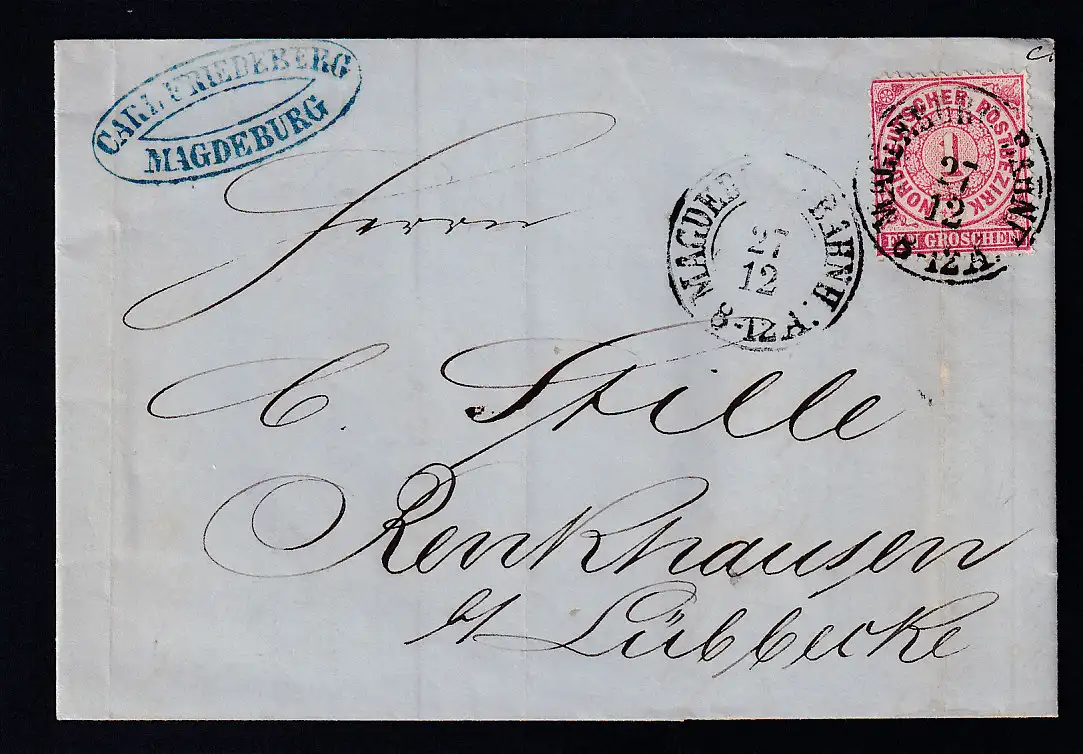 CARL FRIEDEBERG
MAGDEBURG
NORDDEUTSCHER POSTBEZIRK
1
EIN GROSCHEN
MAGDEBURG BAHNH.
27
12
8-12 A.
MAGDEB BAHNH.
27
12
8-12 A.
Herrn
C. Stille
Renkhausen
b/ Lübbecke